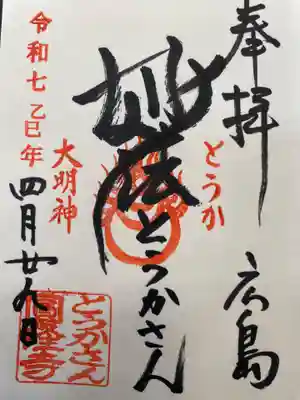 奉拝 広島
とうか
妙法とうかさん
大明神
令和七乙巳年
四月廿九日
とうかさん
圓隆寺